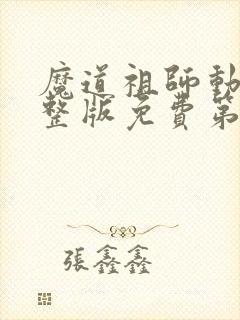 魔道祖師動
整版免費第
張鑫鑫